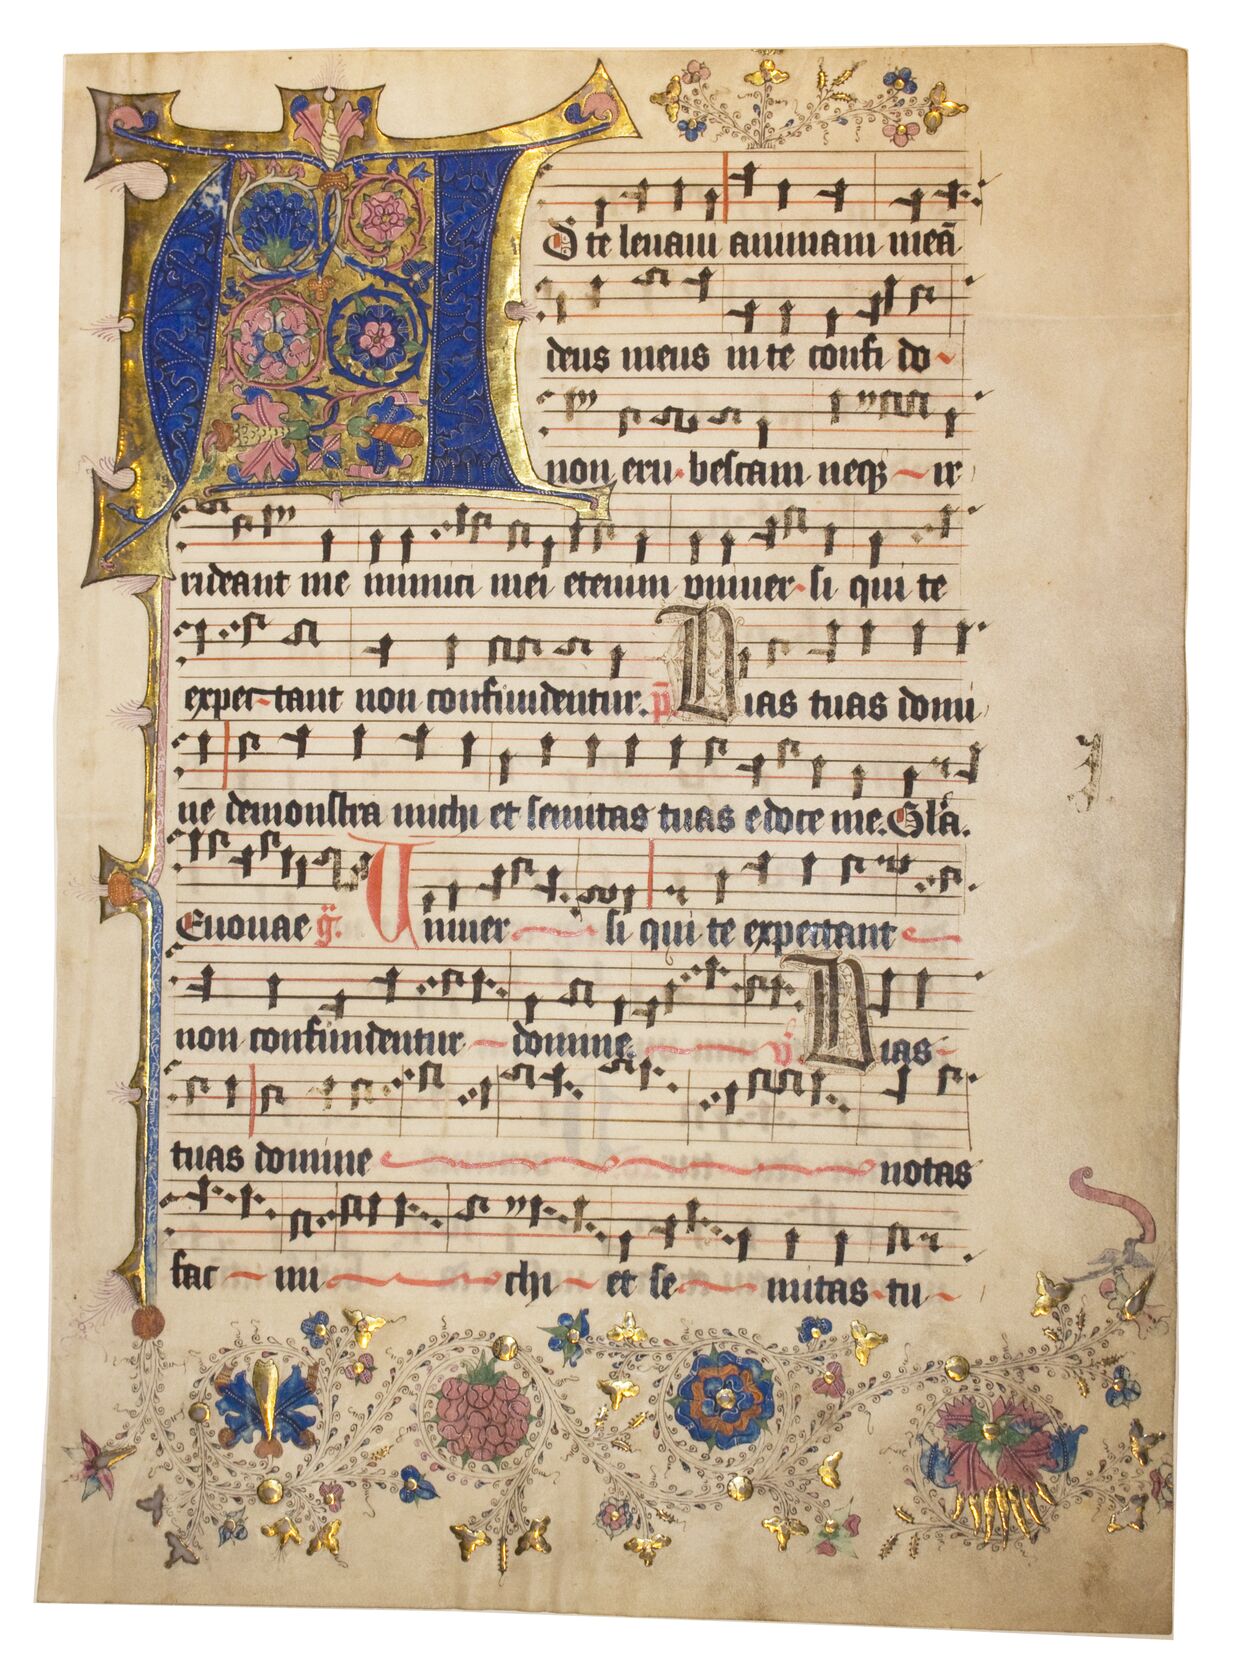 AD te leuam animam meā
deus meus in te confi do
non eru bescam neqꝫ ir
rideant me inimici mei etenim vniuer si qui te
expec tant non confundentur. p̄s Vias tuas domi
ne demonstra michi et semitas tuas edoce me. Gl'a.
Euouae g̃r. Uniuer si qui te expectant
non confundentur domine. v̄ Vias
tuas domine notas
fac mi chi et se mitas tu